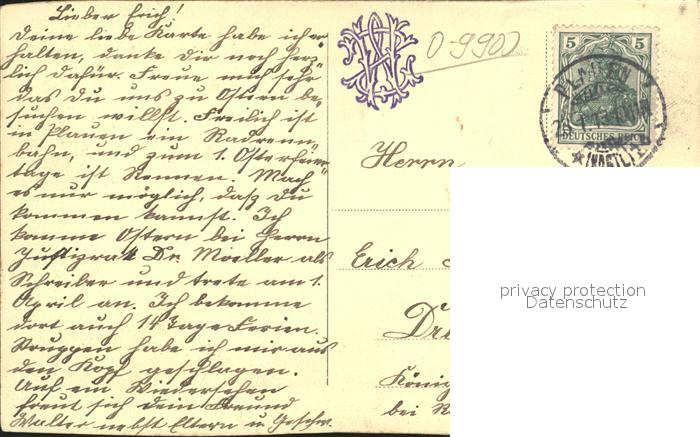 Lieber Erich!
Deine liebe Karte habe ich er=
halten, danke dir noch herz=
lich dafür. Freue mich sehr
das du uns zu Ostern be=
suchen willst. Freilich ist
in Plauen ein Radrenn=
bahn, und zum 1. Osterfeier=
tage ist Rennen. Mach
es nur möglich, dasz du
kommen kannst. Ich
komme Ostern bei Herrn
Justizrat Dr. Moeller als
Schreiber und trete am 1.
April an. Ich bekomme
dort auch 14 Tage Ferien.
Struppen habe ich mir aus
den Kopf geschlagen.
Auf ein Wiedersehen
freut sich dein Freund
Walter nebst Eltern u. Geschw.
0-9902
5 5
DEUTSCHES REICH
PLAUEN
(VOGTL)
Herrn
Erich
privacy protection
Datenschutz
König
bei